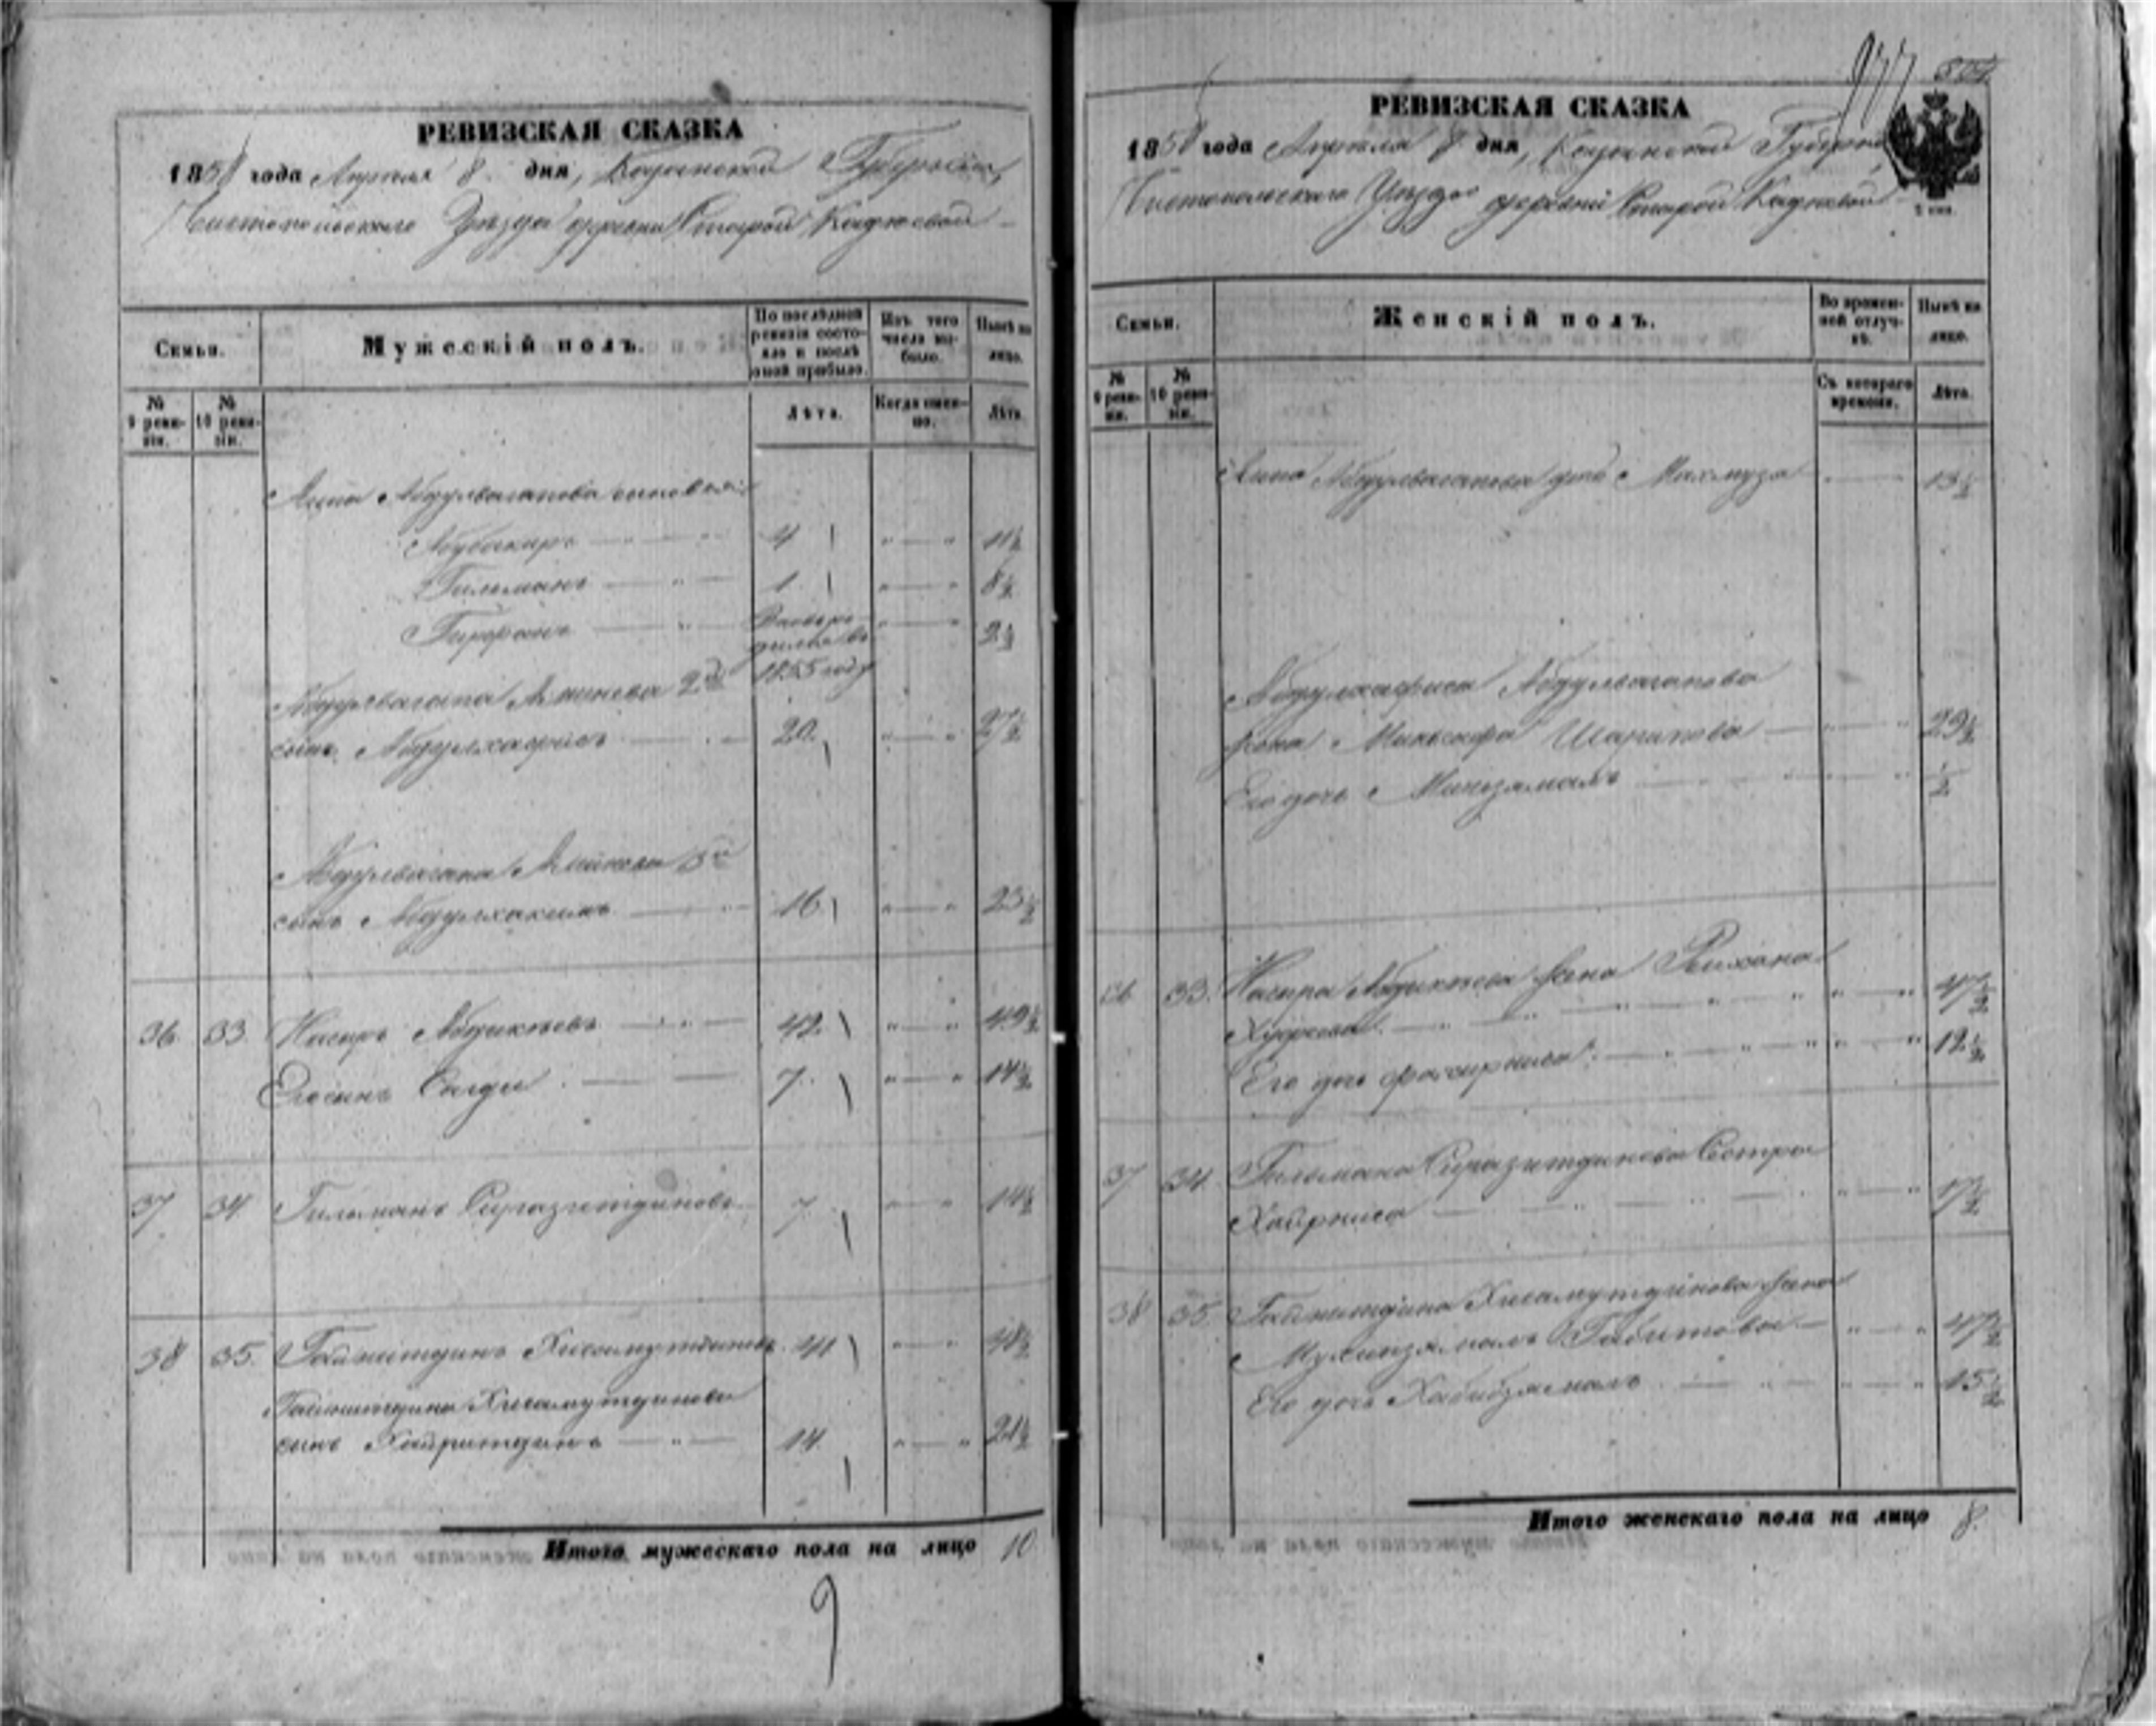 РЕВИЗСКАЯ СКАЗКА
1858 года Апреля 8. дня, Казанской Губернии,
Чистопольскаго Уѣзда деревни Старой Кадеевой
Семьи.
Мужескій полъ.
По послѣдней ревизіи состояло и послѣ оной прибыло.
Изъ того числа выбыло.
Нынѣ на лицо.
№ 9 ревизіи.
№ 10 ревизіи.
Лѣта.
Когда именно.
Лѣта
Абдулвагапова сыновья:
Абубакиръ 4 11½
Гильманъ 1 8½
2½
1855 году
Абдулвагапа Аминева 2й
сынъ Абдулхафизъ 20 27½
Абдулвагапа Аминева 3й
сынъ Абдулхакимъ 16 23½
36 33 Насыръ 42 49½
Его сынъ Сагди 7 14½
37 34 Гильманъ Сиразитдиновъ 7 14½
38 35. Гайнитдинъ Хисамутдиновъ 41 48½
Гайнитдина Хисамутдинова
сынъ Хайритдинъ 14 21½
Итого мужескаго пола на лицо 10
9
977
РЕВИЗСКАЯ СКАЗКА
1858 года Апреля 8 дня, Казанской Губерніи
Чистопольскаго Уѣзда деревни Старой Кадеевой
Семьи.
Женскій полъ.
Во временной отлучкѣ.
Нынѣ на лицо.
№ 9 ревизіи.
№ 10 ревизіи.
Съ котораго времени.
Лѣта.
Абдулвагапова дочь Махмуза 13½
Абдулхафиза Абдулвагапова
жена Шарипова 29½
Его дочь Минзямалъ ½
36 33. Насыра жена Рихана
47½
Его дочь 12½
37 34. Гильмана Сиразитдинова Сестра
Хайрниса 17½
38 35 Гайнитдина Хисамутдинова жена
Габитова 47½
Его дочь Хабибзямалъ 15½
Итого женскаго пола на лицо 8.